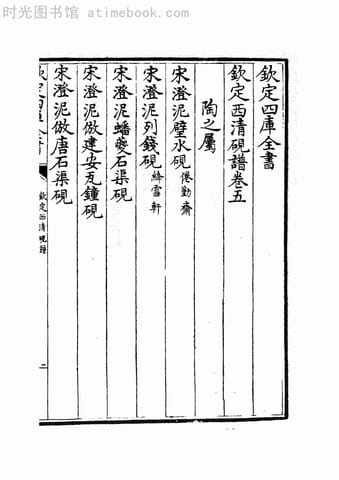 时光图书馆 atimebook.com
欽定四庫全書
欽定西清硯譜卷五
陶之屬
宋澄泥璧水硯 倦勤齋
宋澄泥列錢硯 絳雪軒
宋澄泥蟠夔石渠硯
宋澄泥倣建安瓦鐘硯
宋澄泥倣唐石渠硯
欽定西清硯譜
二